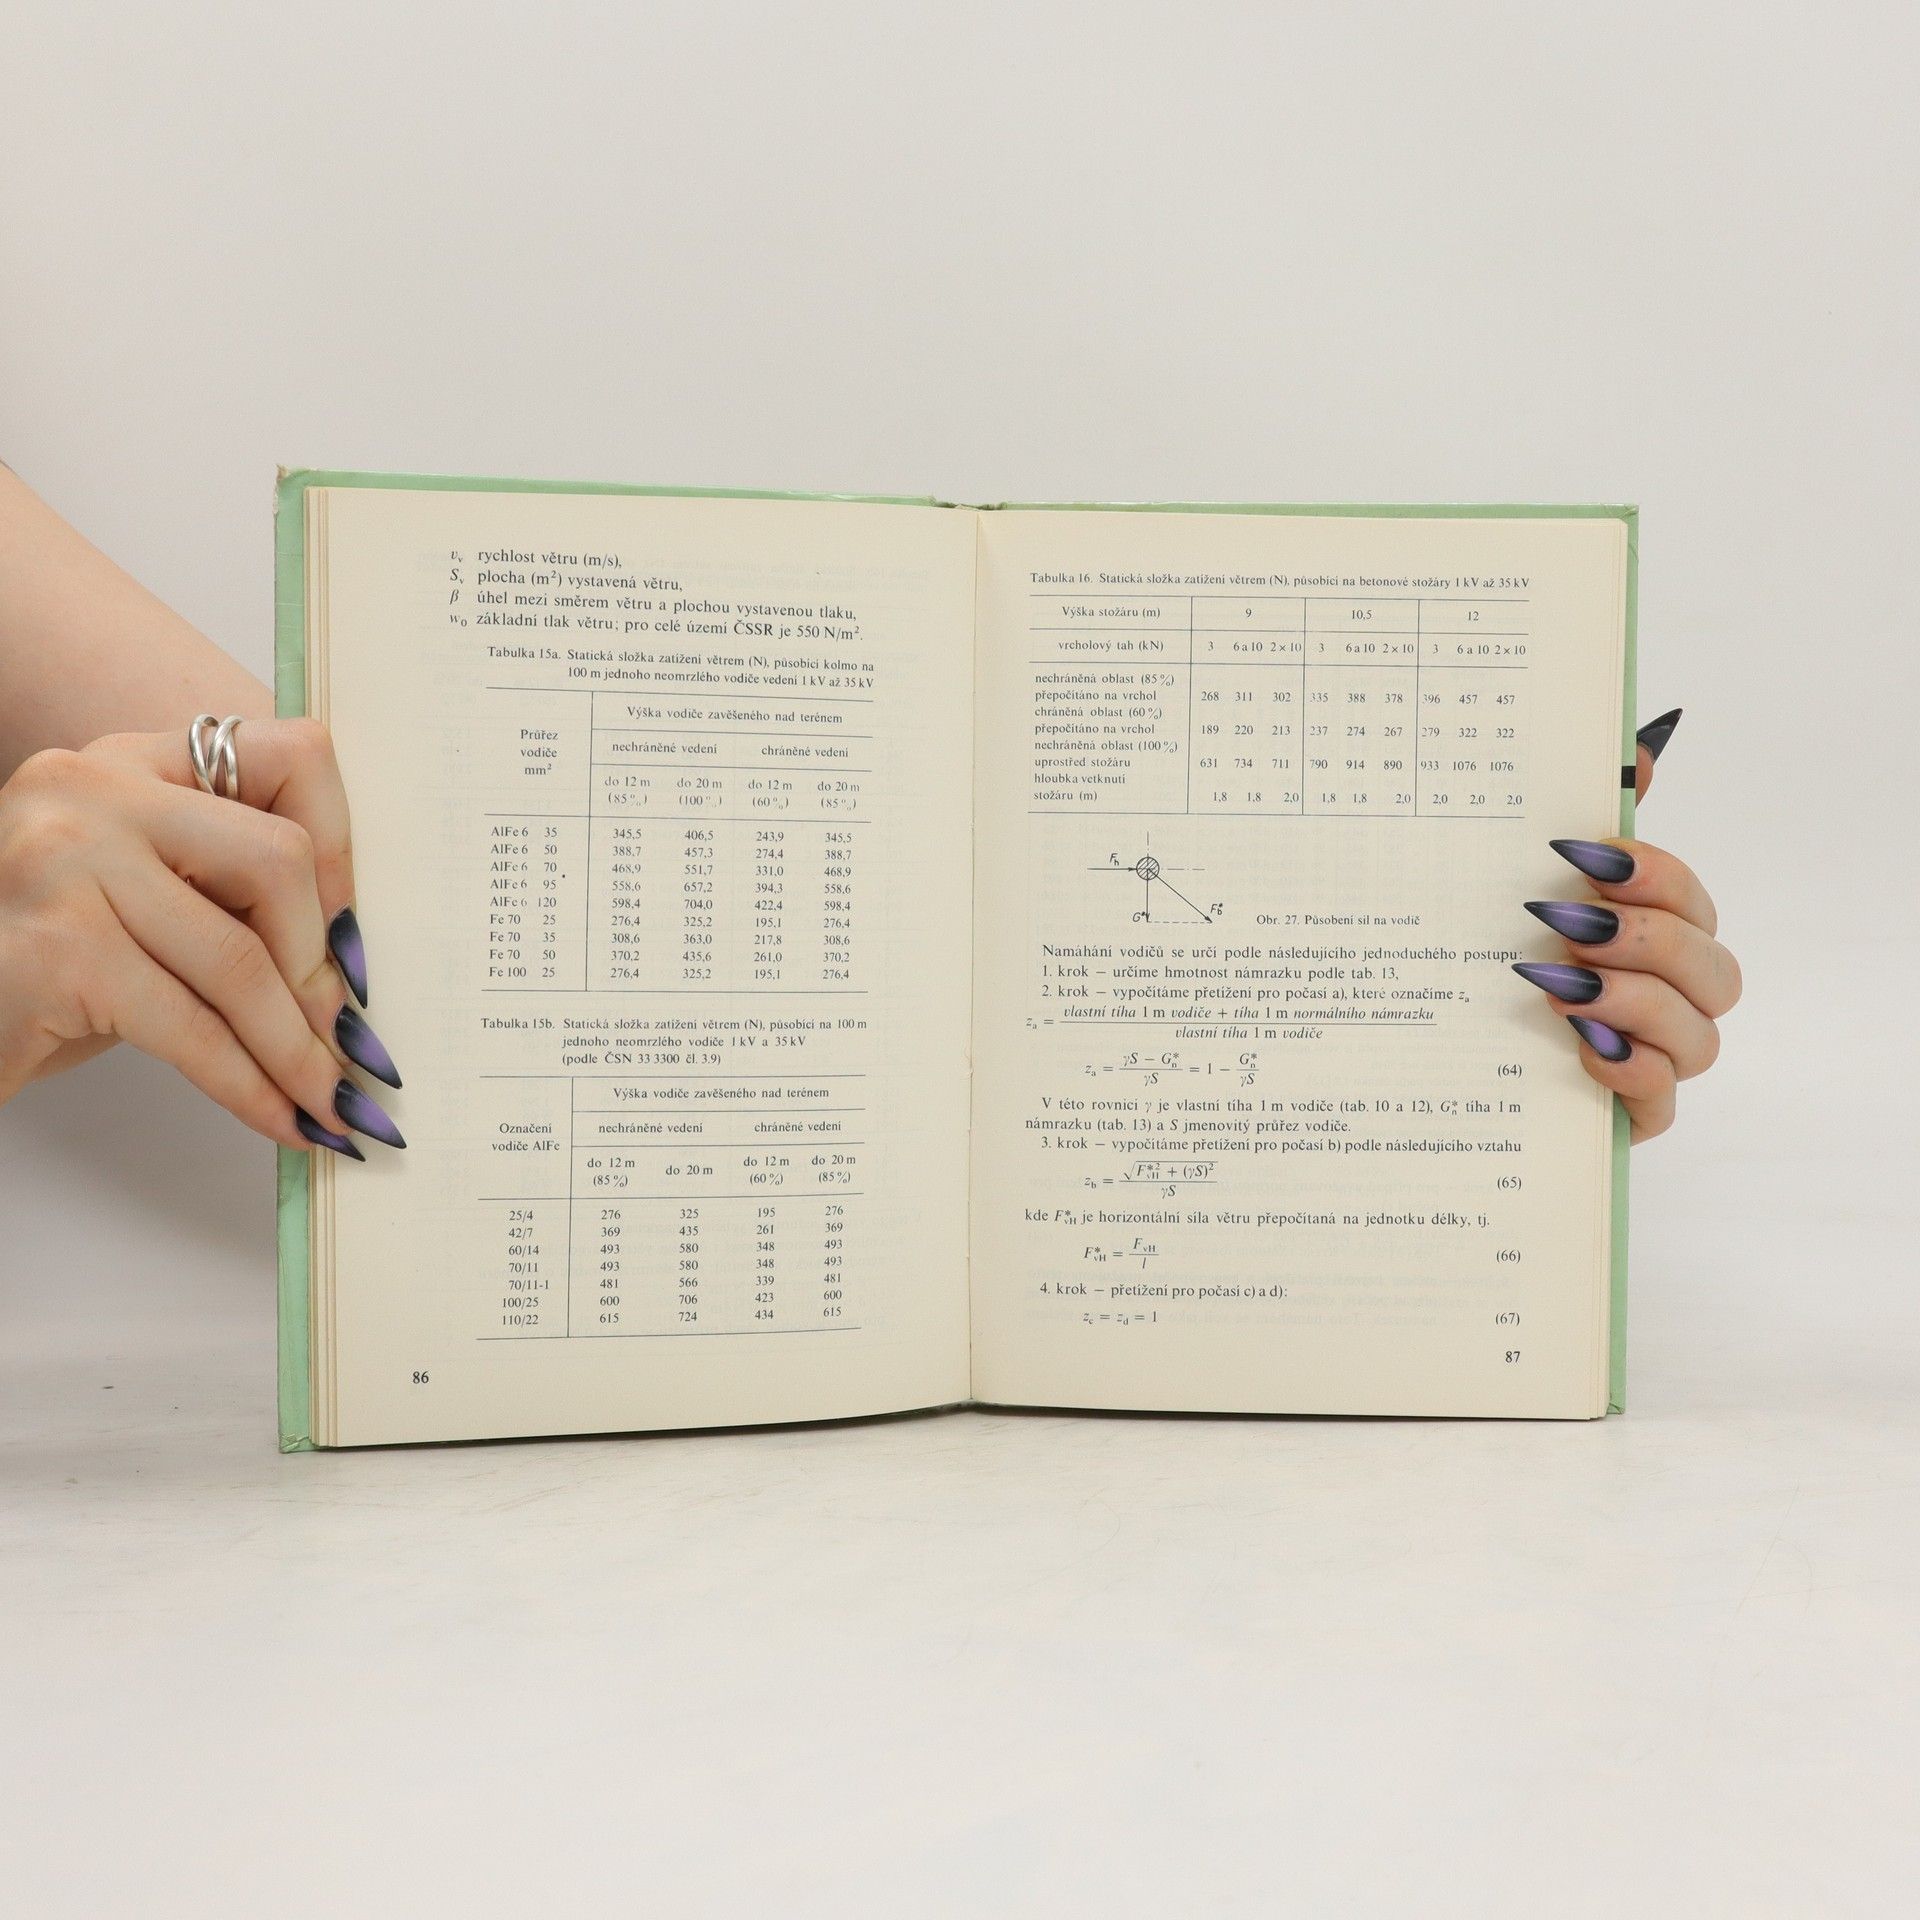 v_v rychlost větru (m/s),
S_v plocha (m²) vystavená větru,
β úhel mezi směrem větru a plochou vystavenou tlaku,
w₀ základní tlak větru; pro celé území ČSSR je 550 N/m².
Tabulka 15a. Statická složka zatížení větrem (N), působící kolmo na
100 m jednoho neomrzlého vodiče vedení 1 kV až 35 kV
Průřez vodiče mm² Výška vodiče zavěšeného nad terénem
nechráněné vedení chráněné vedení
do 12 m (85 %) do 20 m (100 %) do 12 m (60 %) do 20 m (85 %)
AlFe 6 35 345,5 406,5 243,9 345,5
AlFe 6 50 388,7 457,3 274,4 388,7
AlFe 6 70 468,9 551,7 331,0 468,9
AlFe 6 95 558,6 657,2 394,3 558,6
AlFe 6 120 598,4 704,0 422,4 598,4
Fe 70 25 276,4 325,2 195,1 276,4
Fe 70 35 308,6 363,0 217,8 308,6
Fe 70 50 370,2 435,6 261,0 370,2
Fe 100 25 276,4 325,2 195,1 276,4
Tabulka 15b. Statická složka zatížení větrem (N), působící na 100 m
jednoho neomrzlého vodiče 1 kV a 35 kV
(podle ČSN 33 3300 čl. 3.9)
Označení vodiče AlFe Výška vodiče zavěšeného nad terénem
nechráněné vedení chráněné vedení
do 12 m (85 %) do 20 m do 12 m (60 %) do 20 m (85 %)
25/4 276 325 195 276
42/7 369 435 261 369
60/14 493 580 348 493
70/11 493 580 348 493
70/11-1 481 566 339 481
100/25 600 706 423 600
110/22 615 724 434 615
86
Tabulka 16. Statická složka zatížení větrem (N), působící na betonové stožáry 1 kV až 35 kV
Výška stožáru (m) 9 10,5 12
vrcholový tah (kN) 3 6 a 10 2 × 10 3 6 a 10 2 × 10 3 6 a 10 2 × 10
nechráněná oblast (85 %)
přepočítáno na vrchol 268 311 302 335 388 378 396 457 457
chráněná oblast (60 %)
přepočítáno na vrchol 189 220 213 237 274 267 279 322 322
nechráněná oblast (100 %)
uprostřed stožáru 631 734 711 790 914 890 933 1076 1076
hloubka vetknutí
stožáru (m) 1,8 1,8 2,0 1,8 1,8 2,0 2,0 2,0 2,0
F_h
G* F_b*
Obr. 27. Působení sil na vodič
Namáhání vodičů se určí podle následujícího jednoduchého postupu:
1. krok — určíme hmotnost námrazku podle tab. 13,
2. krok — vypočítáme přetížení pro počasí a), které označíme z_a
z_a = vlastní tíha 1 m vodiče + tíha 1 m normálního námrazku / vlastní tíha 1 m vodiče
z_a = (γS − G_n*) / γS = 1 − G_n* / γS (64)
V této rovnici γ je vlastní tíha 1 m vodiče (tab. 10 a 12), G_n* tíha 1 m
námrazku (tab. 13) a S jmenovitý průřez vodiče.
3. krok — vypočítáme přetížení pro počasí b) podle následujícího vztahu
z_b = √(F_vH*² + (γS)²) / γS (65)
kde F_vH* je horizontální síla větru přepočítaná na jednotku délky, tj.
F_vH* = F_vH / l (66)
4. krok — přetížení pro počasí c) a d):
z_c = z_d = 1 (67)
87